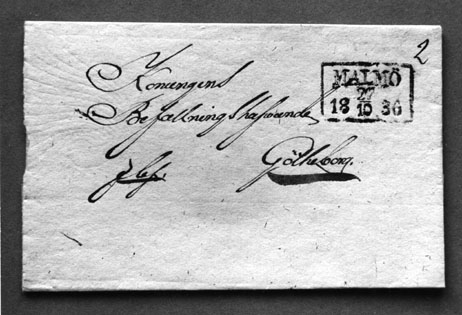 2
MALMÖ
27
18 10 36
Konungens
Befallningshafwande
Götheborg.